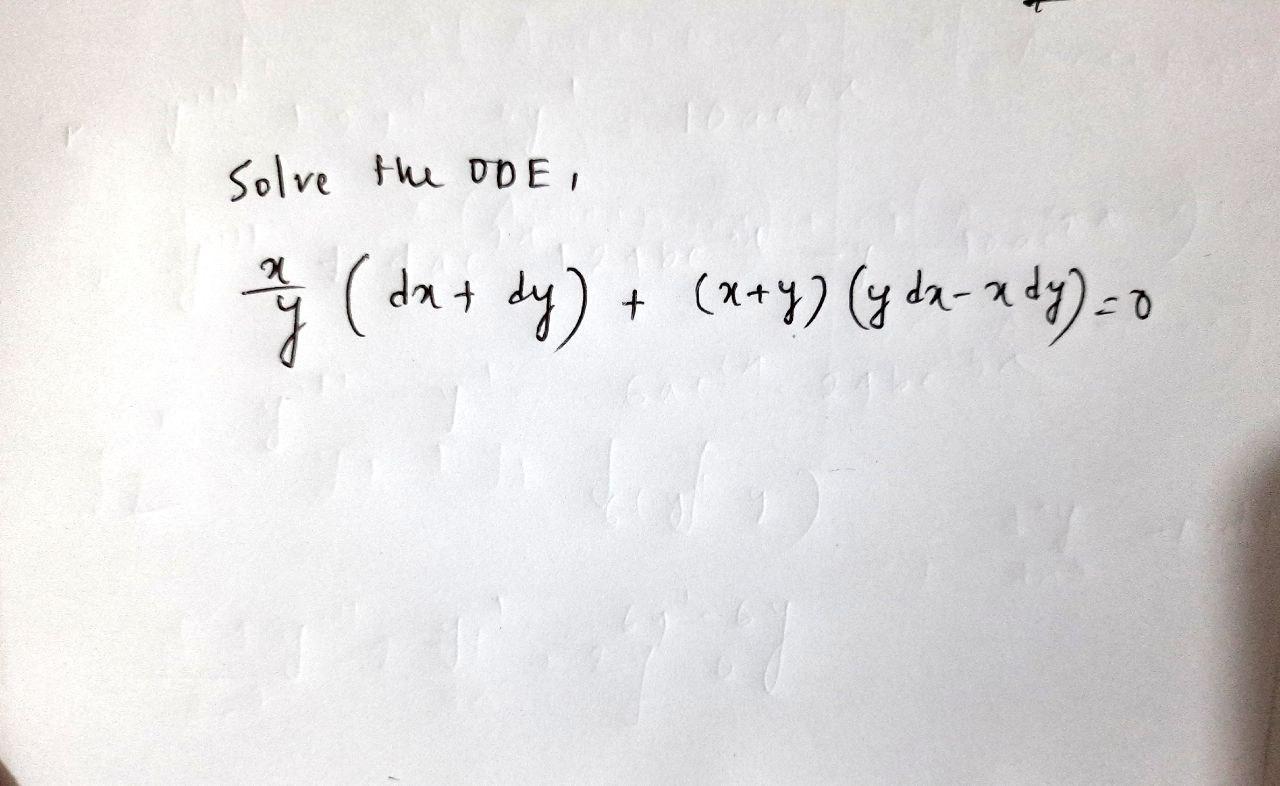 Solve the ODE,
x/y (dx + dy) + (x+y) (y dx - x dy) = 0